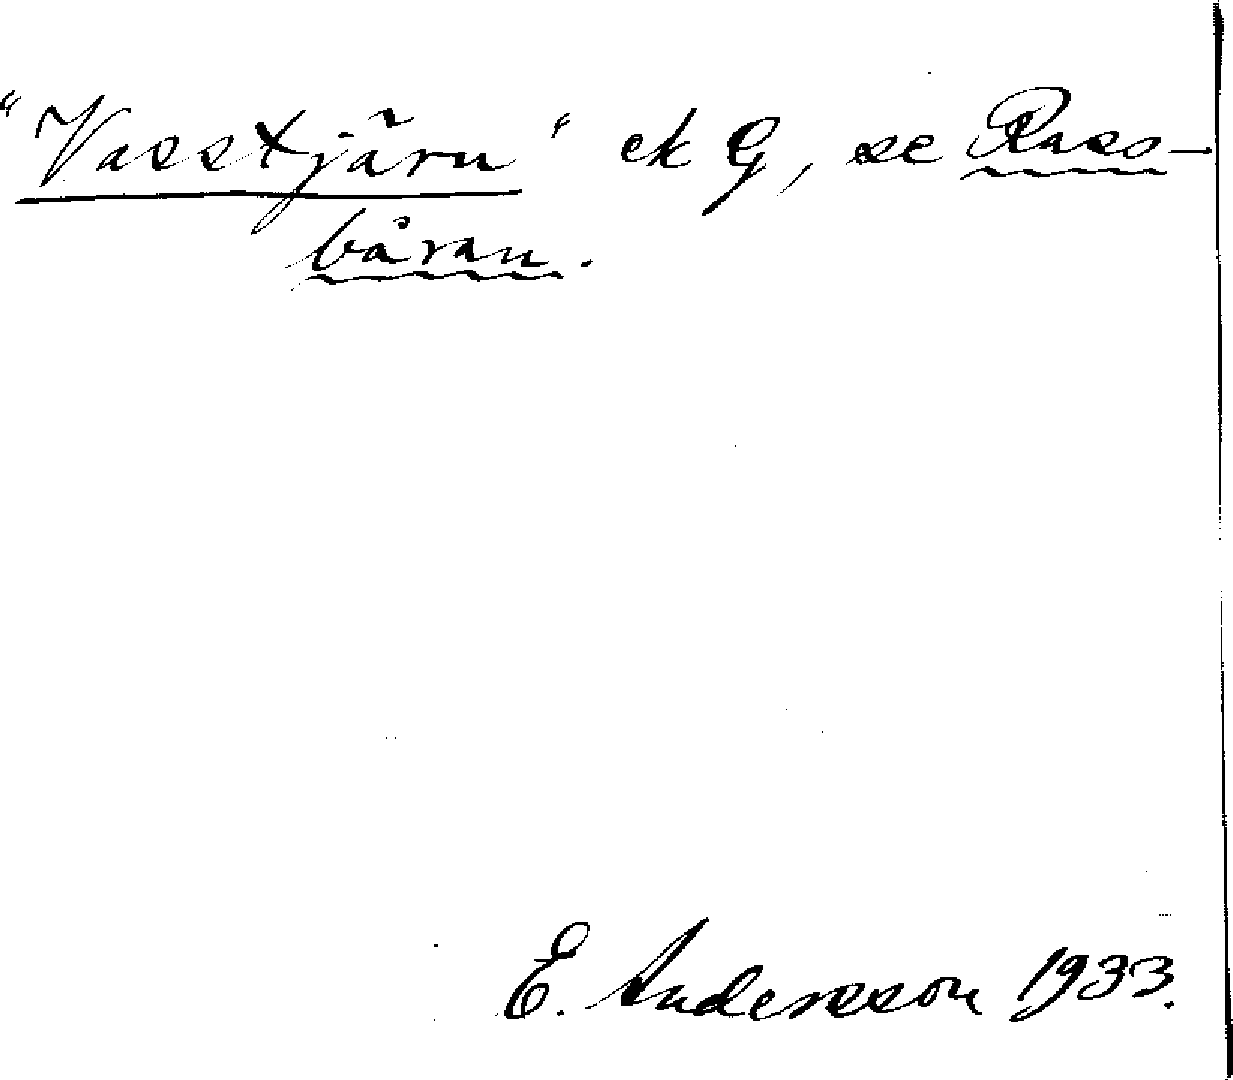 "Vasstjärn" ek G, se Rass-
båran.
E. Andersson 1933.